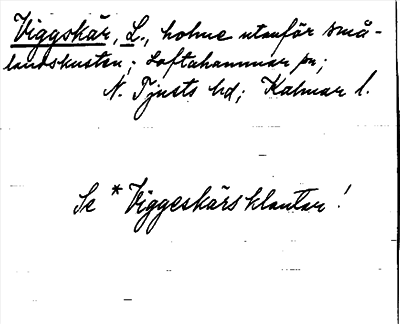 Viggskär, L., holme utanför små-
landskusten; Loftahammar sn;
N. Tjusts hd; Kalmar l.
Se *Viggeskärsklantar!